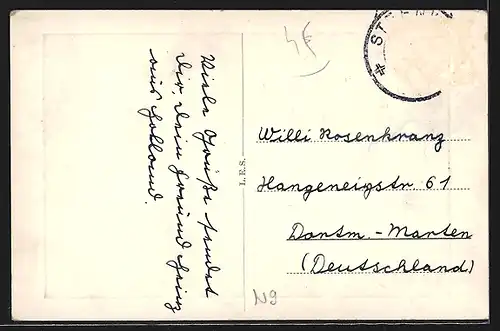 Viele Grüße sendet
Dir, Dein Freund Heinz
aus Holland.
4€
Willi Rosenkranz
Hangeneigstr. 61
Dortm.-Marten
(Deutschland)
L.E.S.
N9